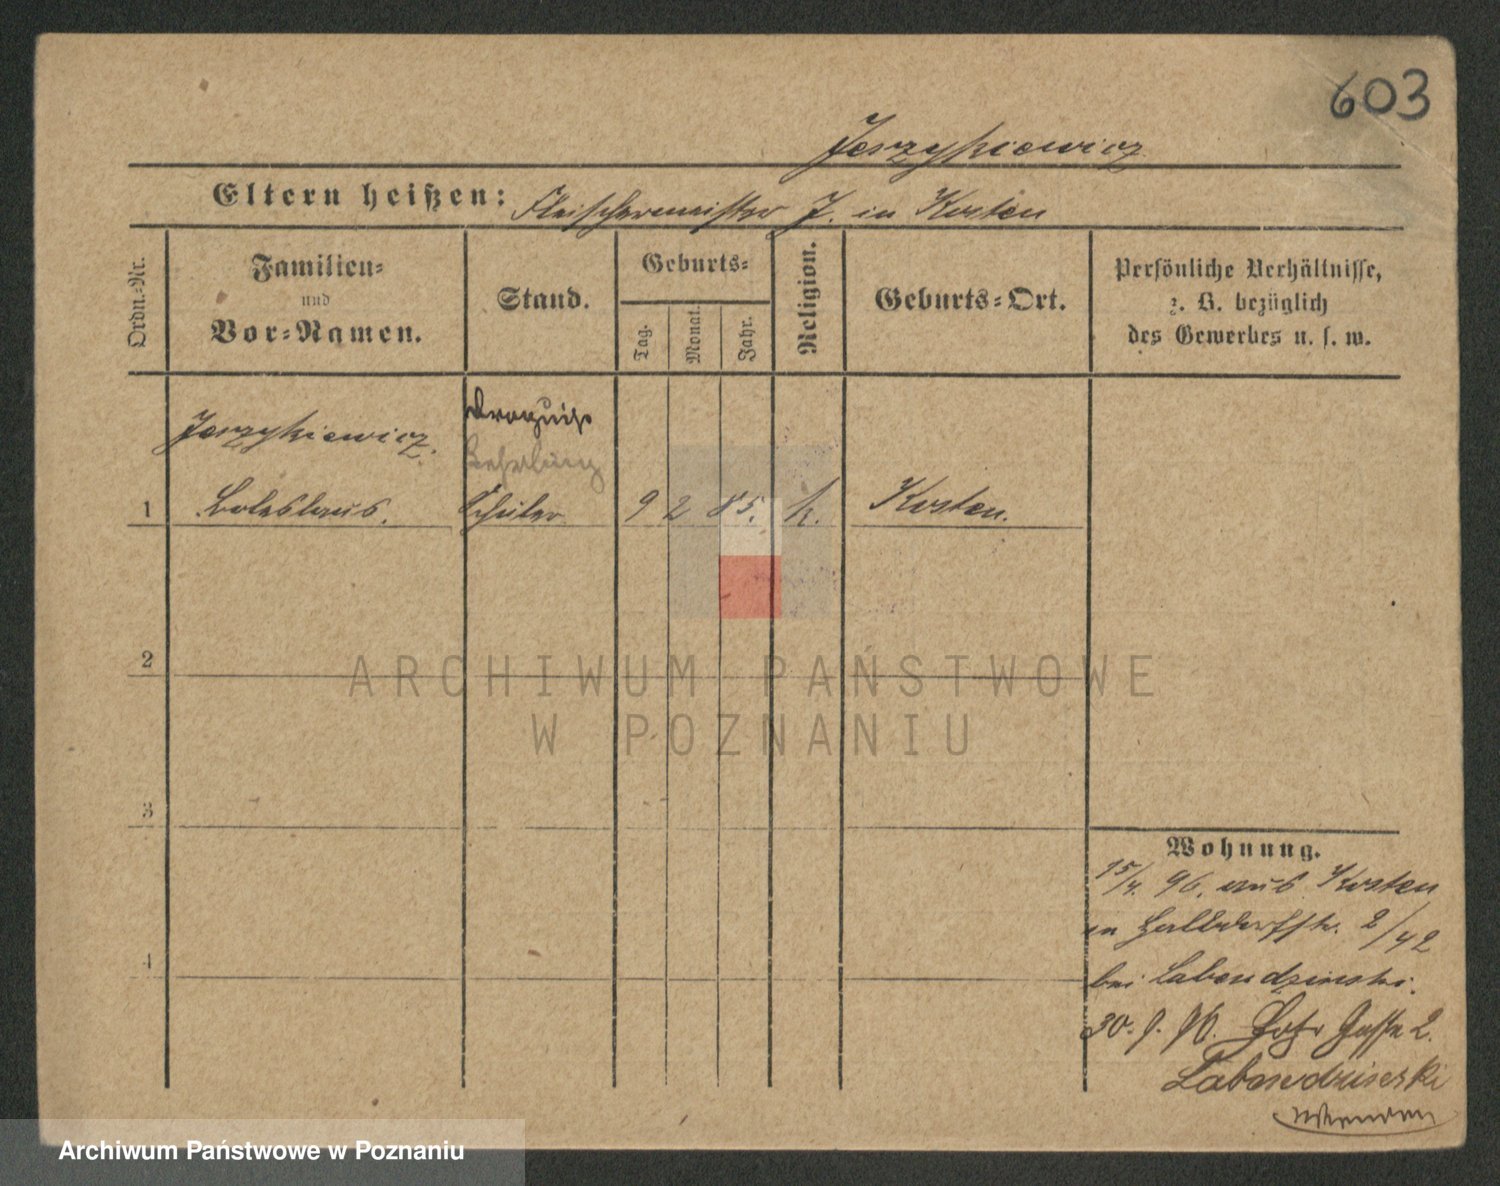 603
Jerzykiewicz
Eltern heißen: Fleischermeister J. in Kosten
Ordn.-Nr.
Familien-
und
Vor-Namen.
Stand.
Geburts-
Tag.
Monat.
Jahr.
Religion.
Geburts-Ort.
Persönliche Verhältnisse,
z. B. bezüglich
des Gewerbes u. s. w.
Jerzykiewicz.
Droguist
1 Boleslaus. Schüler 9 2 85. k. Kosten.
2
3
4
Wohnung.
15/4. 96. aus Kosten
in Halbdorfstr. 2/42
bei Labendzinski.
30. 9. 96. Gasse 2.
Labendzinski
ARCHIWUM PAŃSTWOWE
W POZNANIU
Archiwum Państwowe w Poznaniu